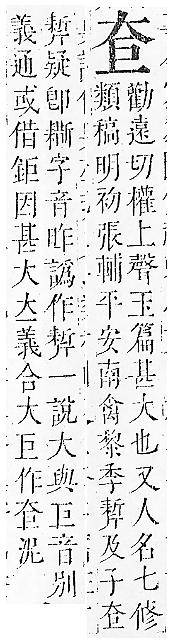 奆
勸遠切權上聲玉篇甚大也又人名七修
類稿明初張輔平安南禽黎季及子奆
疑卽字音昨譌作一說大與巨音別
義通或借鉅因甚大大義合大巨作奆況